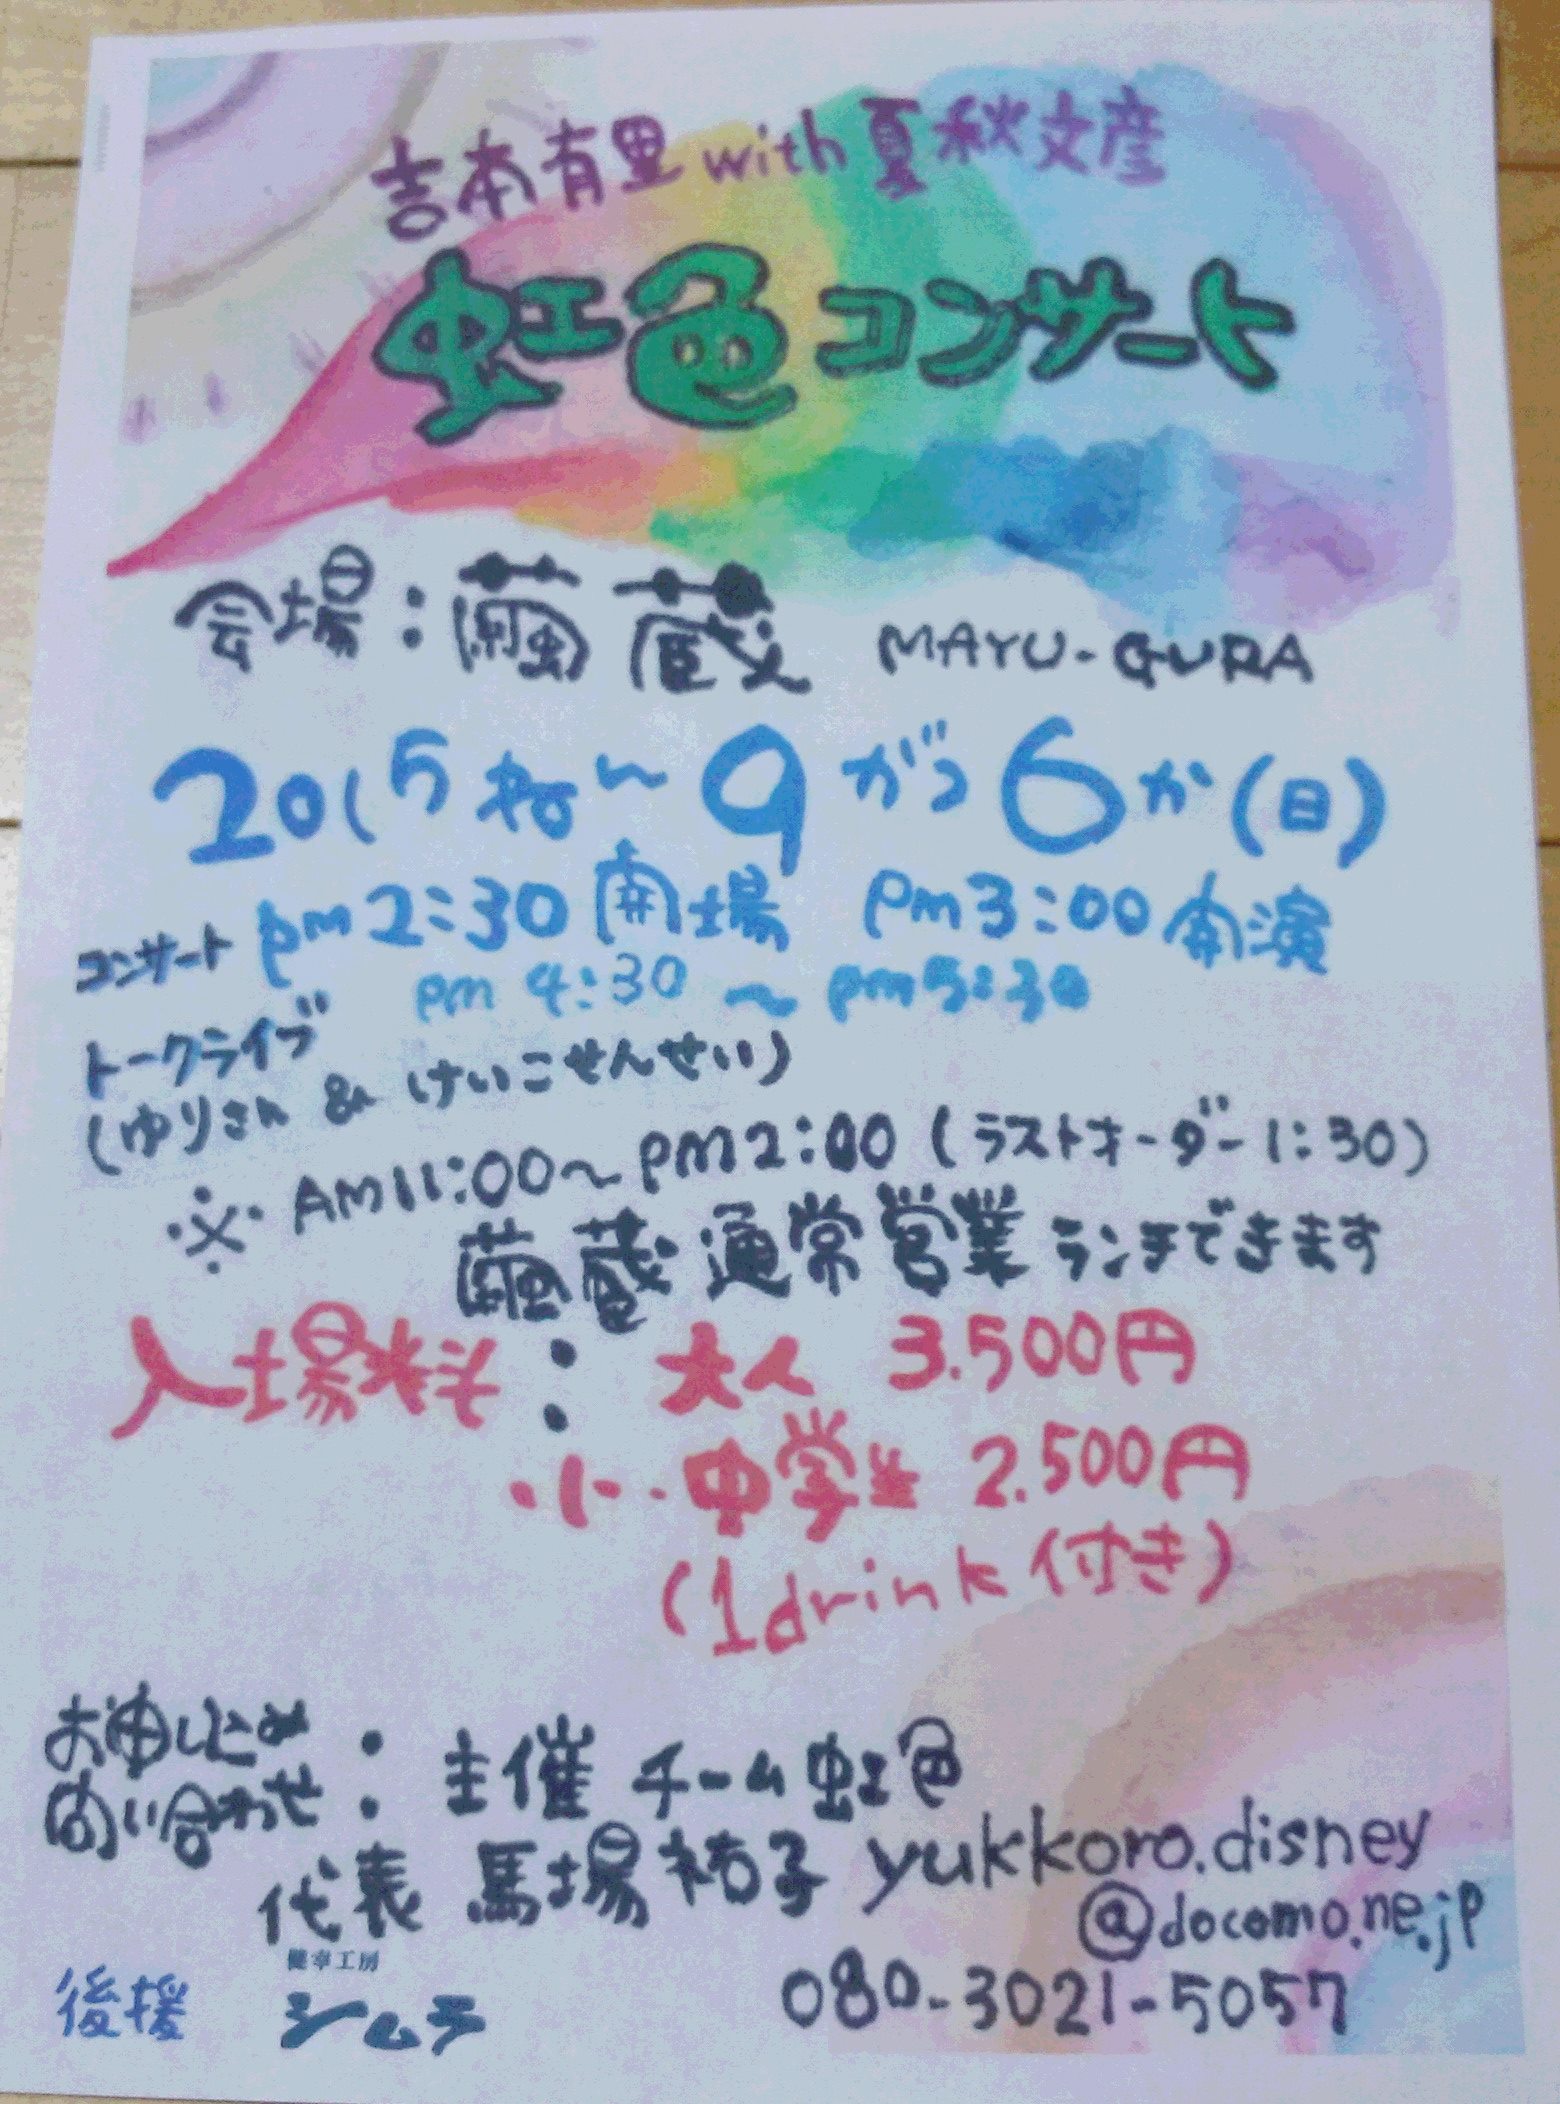 吉本有里with夏秋文彦
虹色コンサート
会場：繭蔵 MAYU-GURA
2015ねん9がつ6か(日)
コンサート pm2:30開場 pm3:00開演
トークライブ pm4:30〜pm5:30
(ゆりさん & けいこせんせい)
※ AM11:00〜pm2:00(ラストオーダー1:30)
繭蔵通常営業ランチできます
入場料： 大人 3.500円
小・中学生 2.500円
(1drink付き)
お申し込み
問い合わせ：主催 チーム虹色
代表 馬場祐子 yukkoro.disney
@docomo.ne.jp
080-3021-5057
後援 健幸工房
シムラ